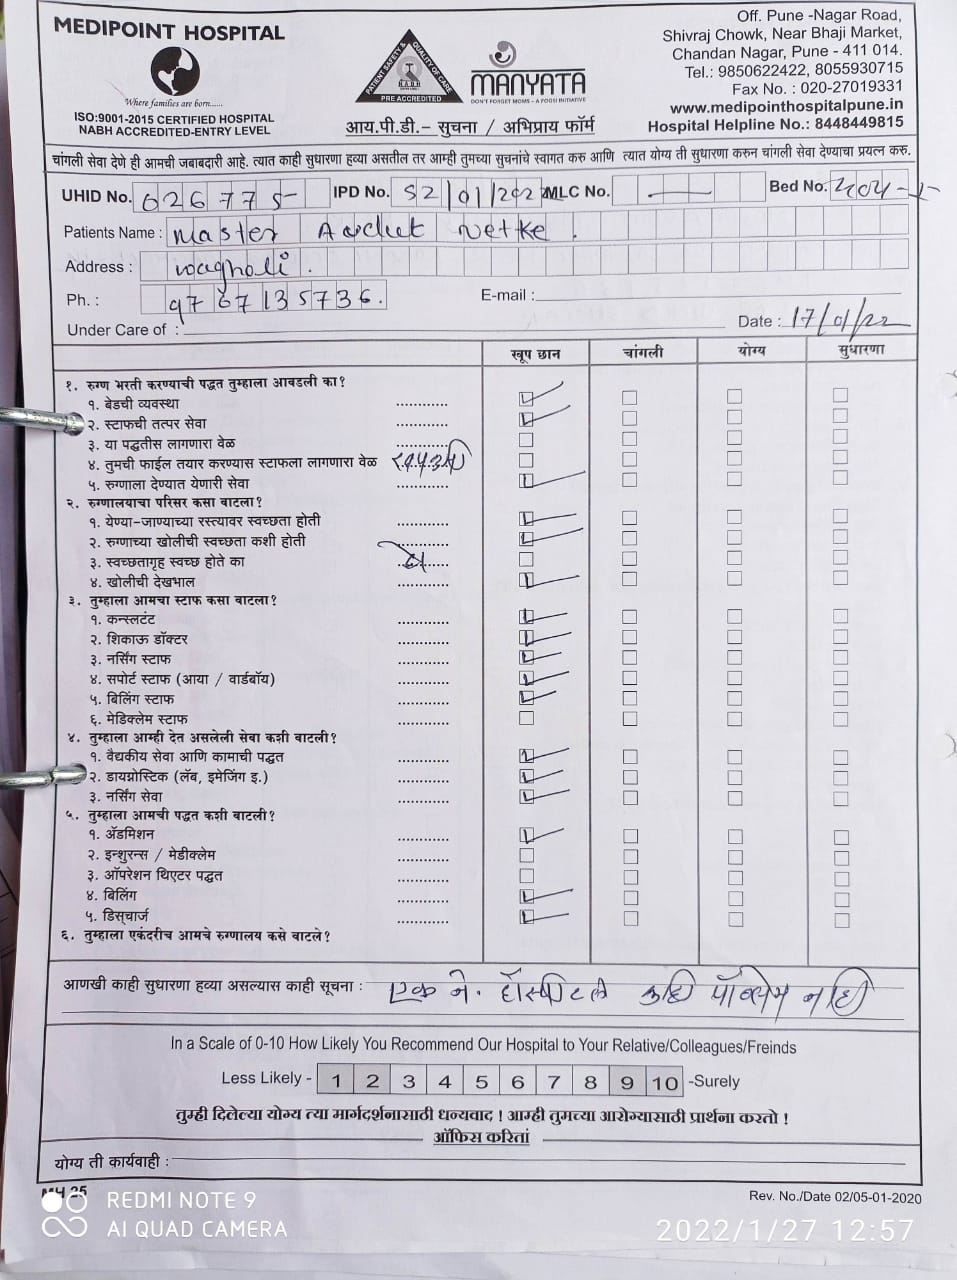 MEDIPOINT HOSPITAL
Where families are born......
ISO:9001-2015 CERTIFIED HOSPITAL
NABH ACCREDITED-ENTRY LEVEL
PATIENT SAFETY & QUALITY OF CARE
N.A.B.H
PRE ACCREDITED
MANYATA
DON'T FORGET MOMS - A FOGSI INITIATIVE
आय.पी.डी.– सुचना / अभिप्राय फॉर्म
Off. Pune -Nagar Road,
Shivraj Chowk, Near Bhaji Market,
Chandan Nagar, Pune - 411 014.
Tel.: 9850622422, 8055930715
Fax No. : 020-27019331
www.medipointhospitalpune.in
Hospital Helpline No.: 8448449815
चांगली सेवा देणे ही आमची जबाबदारी आहे. त्यात काही सुधारणा हव्या असतील तर आम्ही तुमच्या सुचनांचे स्वागत करु आणि त्यात योग्य ती सुधारणा करुन चांगली सेवा देण्याचा प्रयत्न करु.
UHID No. 026775 IPD No. 52/01/202 MLC No. Bed No. 204-
Patients Name : Master
Address : wagholi.
Ph. : 9767135736. E-mail :
Under Care of : Date : 17/01/22
खूप छान चांगली योग्य सुधारणा
१. रुग्ण भरती करण्याची पद्धत तुम्हाला आवडली का?
१. बेडची व्यवस्था
२. स्टाफची तत्पर सेवा
३. या पद्धतीस लागणारा वेळ
४. तुमची फाईल तयार करण्यास स्टाफला लागणारा वेळ
५. रुग्णाला देण्यात येणारी सेवा
२. रुग्णालयाचा परिसर कसा वाटला?
१. येण्या-जाण्याच्या रस्त्यावर स्वच्छता होती
२. रुग्णाच्या खोलीची स्वच्छता कशी होती
३. स्वच्छतागृह स्वच्छ होते का
४. खोलीची देखभाल
३. तुम्हाला आमचा स्टाफ कसा वाटला?
१. कन्स्लटंट
२. शिकाऊ डॉक्टर
३. नर्सिंग स्टाफ
४. सपोर्ट स्टाफ (आया / वार्डबॉय)
५. बिलिंग स्टाफ
६. मेडिक्लेम स्टाफ
४. तुम्हाला आम्ही देत असलेली सेवा कशी वाटली?
१. वैद्यकीय सेवा आणि कामाची पद्धत
२. डायग्नोस्टिक (लॅब, इमेजिंग इ.)
३. नर्सिंग सेवा
५. तुम्हाला आमची पद्धत कशी वाटली?
१. ॲडमिशन
२. इन्शुरन्स / मेडीक्लेम
३. ऑपरेशन थिएटर पद्धत
४. बिलिंग
५. डिस्चार्ज
६. तुम्हाला एकंदरीच आमचे रुग्णालय कसे वाटले?
आणखी काही सुधारणा हव्या असल्यास काही सूचना : एक ने. नाही
In a Scale of 0-10 How Likely You Recommend Our Hospital to Your Relative/Colleagues/Freinds
Less Likely - 1 2 3 4 5 6 7 8 9 10 -Surely
तुम्ही दिलेल्या योग्य त्या मार्गदर्शनासाठी धन्यवाद ! आम्ही तुमच्या आरोग्यासाठी प्रार्थना करतो !
ऑफिस करितां
योग्य ती कार्यवाही :
MH 25
Rev. No./Date 02/05-01-2020
REDMI NOTE 9
AI QUAD CAMERA
2022/1/27 12:57